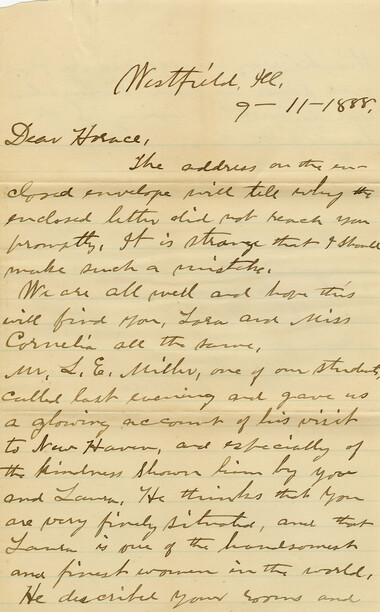 Westfield, Ill,
9-11-1888,
Dear Horace,
The address on the en-
closed envelope will tell why the
enclosed letter did not reach you
promptly. It is strange that I should
make such a mistake.
We are all well and hope this
will find you, Lora and Miss
Cornelia all the same,
Mr. L. E. Miller, one of our students,
called last evening and gave us
a glowing account of his visit
to New Haven, and especially of
the kindness shown him by you
and Laura. He thinks that you
are very finely situated, and that
Laura is one of the handsomest
and finest women in the world,
He described your rooms and